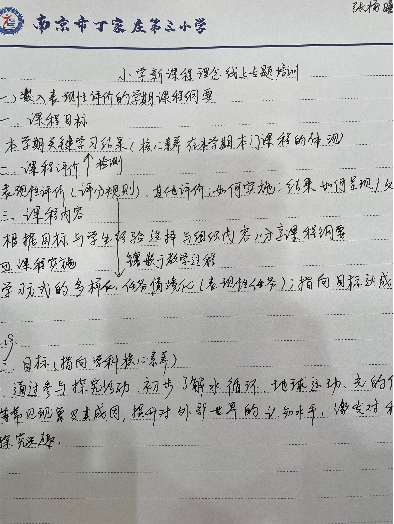 南京市丁家庄第三小学
小学新课程理念线上专题培训
一）嵌入表现性评价的学期课程纲要
一、课程目标
本学期关键学习结果（核心素养在本学期本门课程的体现）
二、课程评价 检测
表现性评价（评分规则）、其他评价，如何实施；结果如何呈现
三、课程内容
根据目标与学生经验选择与组织内容，分享课程纲要
四、课程实施 镶嵌于教学过程
学习方式的多样化，任务情境化（表现性任务）；指向目标达成
目标（指向学科核心素养）
通过参与探究活动，初步了解水循环、地球运动、光的
等常见现象及其成因，提升对外部世界的认知水平，激发对
探究兴趣。